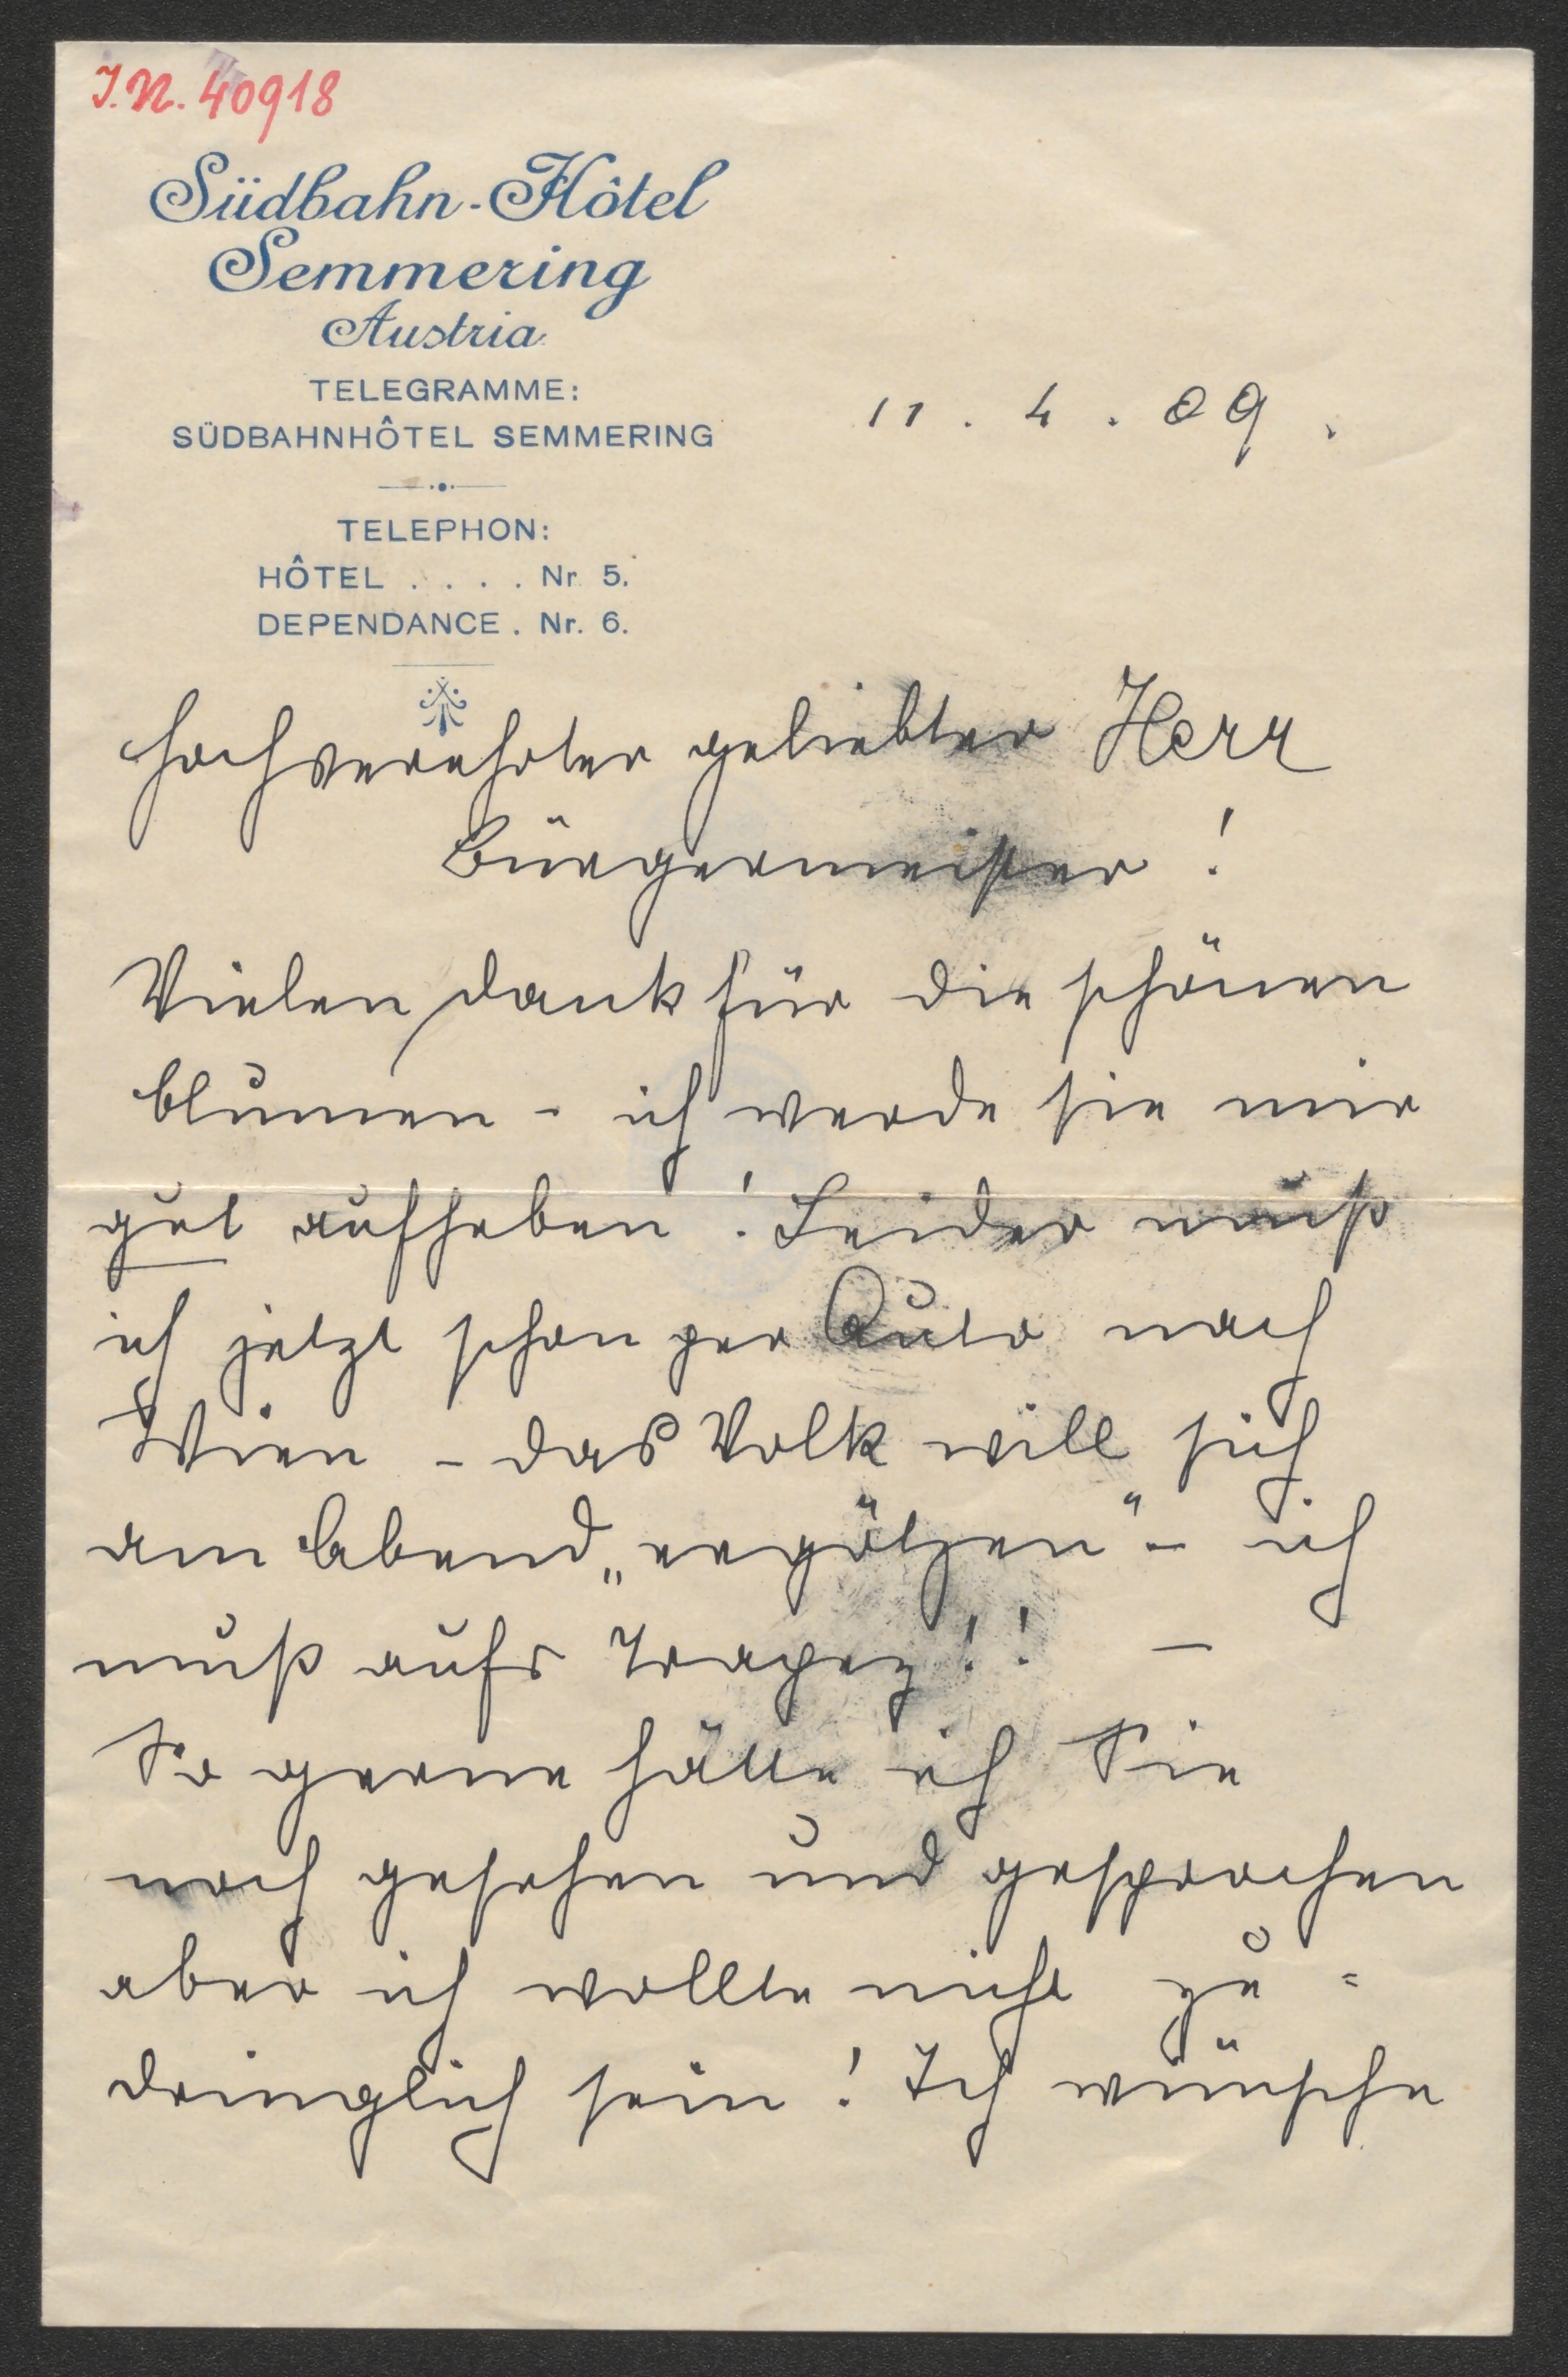 J.N. 40918
Südbahn-Hôtel
Semmering
Austria
TELEGRAMME:
SÜDBAHNHÔTEL SEMMERING
11. 4. 09.
TELEPHON:
HÔTEL . . . . Nr. 5.
DEPENDANCE . Nr. 6.
Hochverehrter geliebter Herr
Bürgermeister!
Vielen Dank für die schönen
Blumen - ich werde sie mir
gut aufheben! Leider muß
ich jetzt schon per Auto nach
Wien - das Volk will sich
am Abend „ergötzen" - ich
muß aufs Trapez!! -
So gerne hätte ich Sie
noch gesehen und gesprochen
aber ich wollte nicht zu=
dringlich sein! Ich wünsche